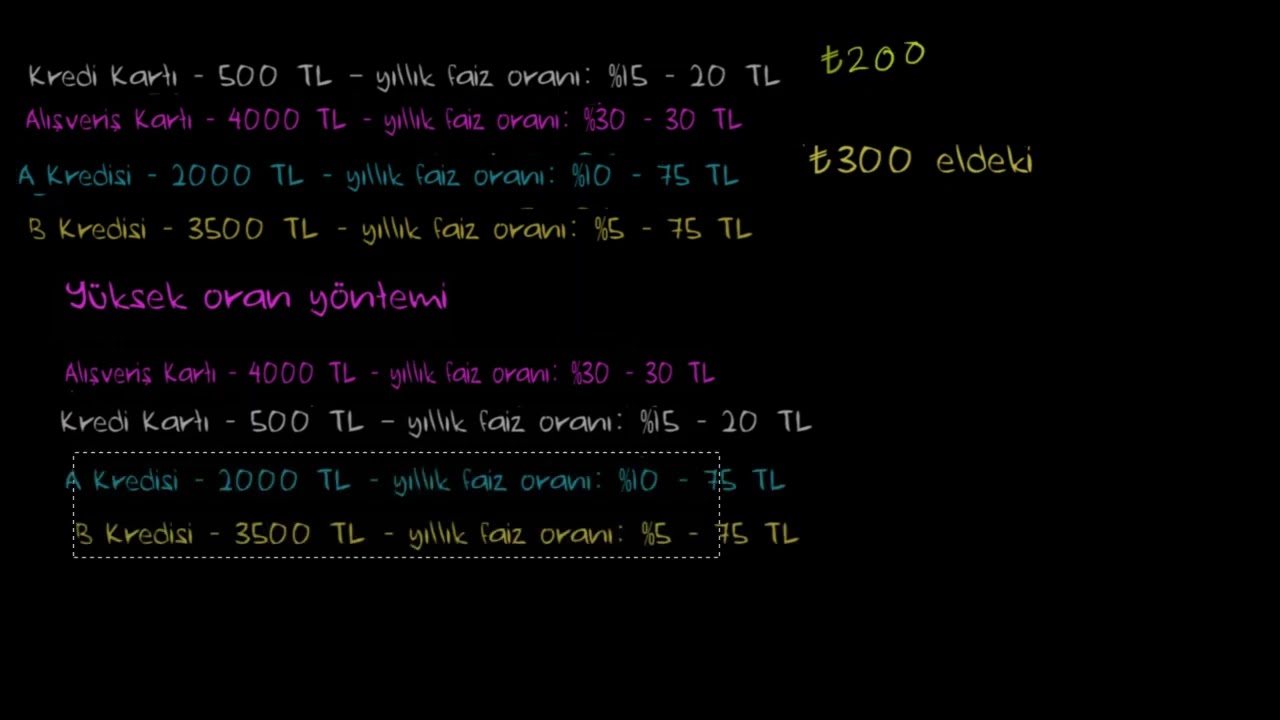 Kredi Kartı - 500 TL - yıllık faiz oranı: %15 - 20 TL
₺200
Alışveriş Kartı - 4000 TL - yıllık faiz oranı: %30 - 30 TL
₺300 eldeki
A Kredisi - 2000 TL - yıllık faiz oranı: %10 - 75 TL
B Kredisi - 3500 TL - yıllık faiz oranı: %5 - 75 TL
Yüksek oran yöntemi
Alışveriş Kartı - 4000 TL - yıllık faiz oranı: %30 - 30 TL
Kredi Kartı - 500 TL - yıllık faiz oranı: %15 - 20 TL
A Kredisi - 2000 TL - yıllık faiz oranı: %10 - 75 TL
B Kredisi - 3500 TL - yıllık faiz oranı: %5 - 75 TL